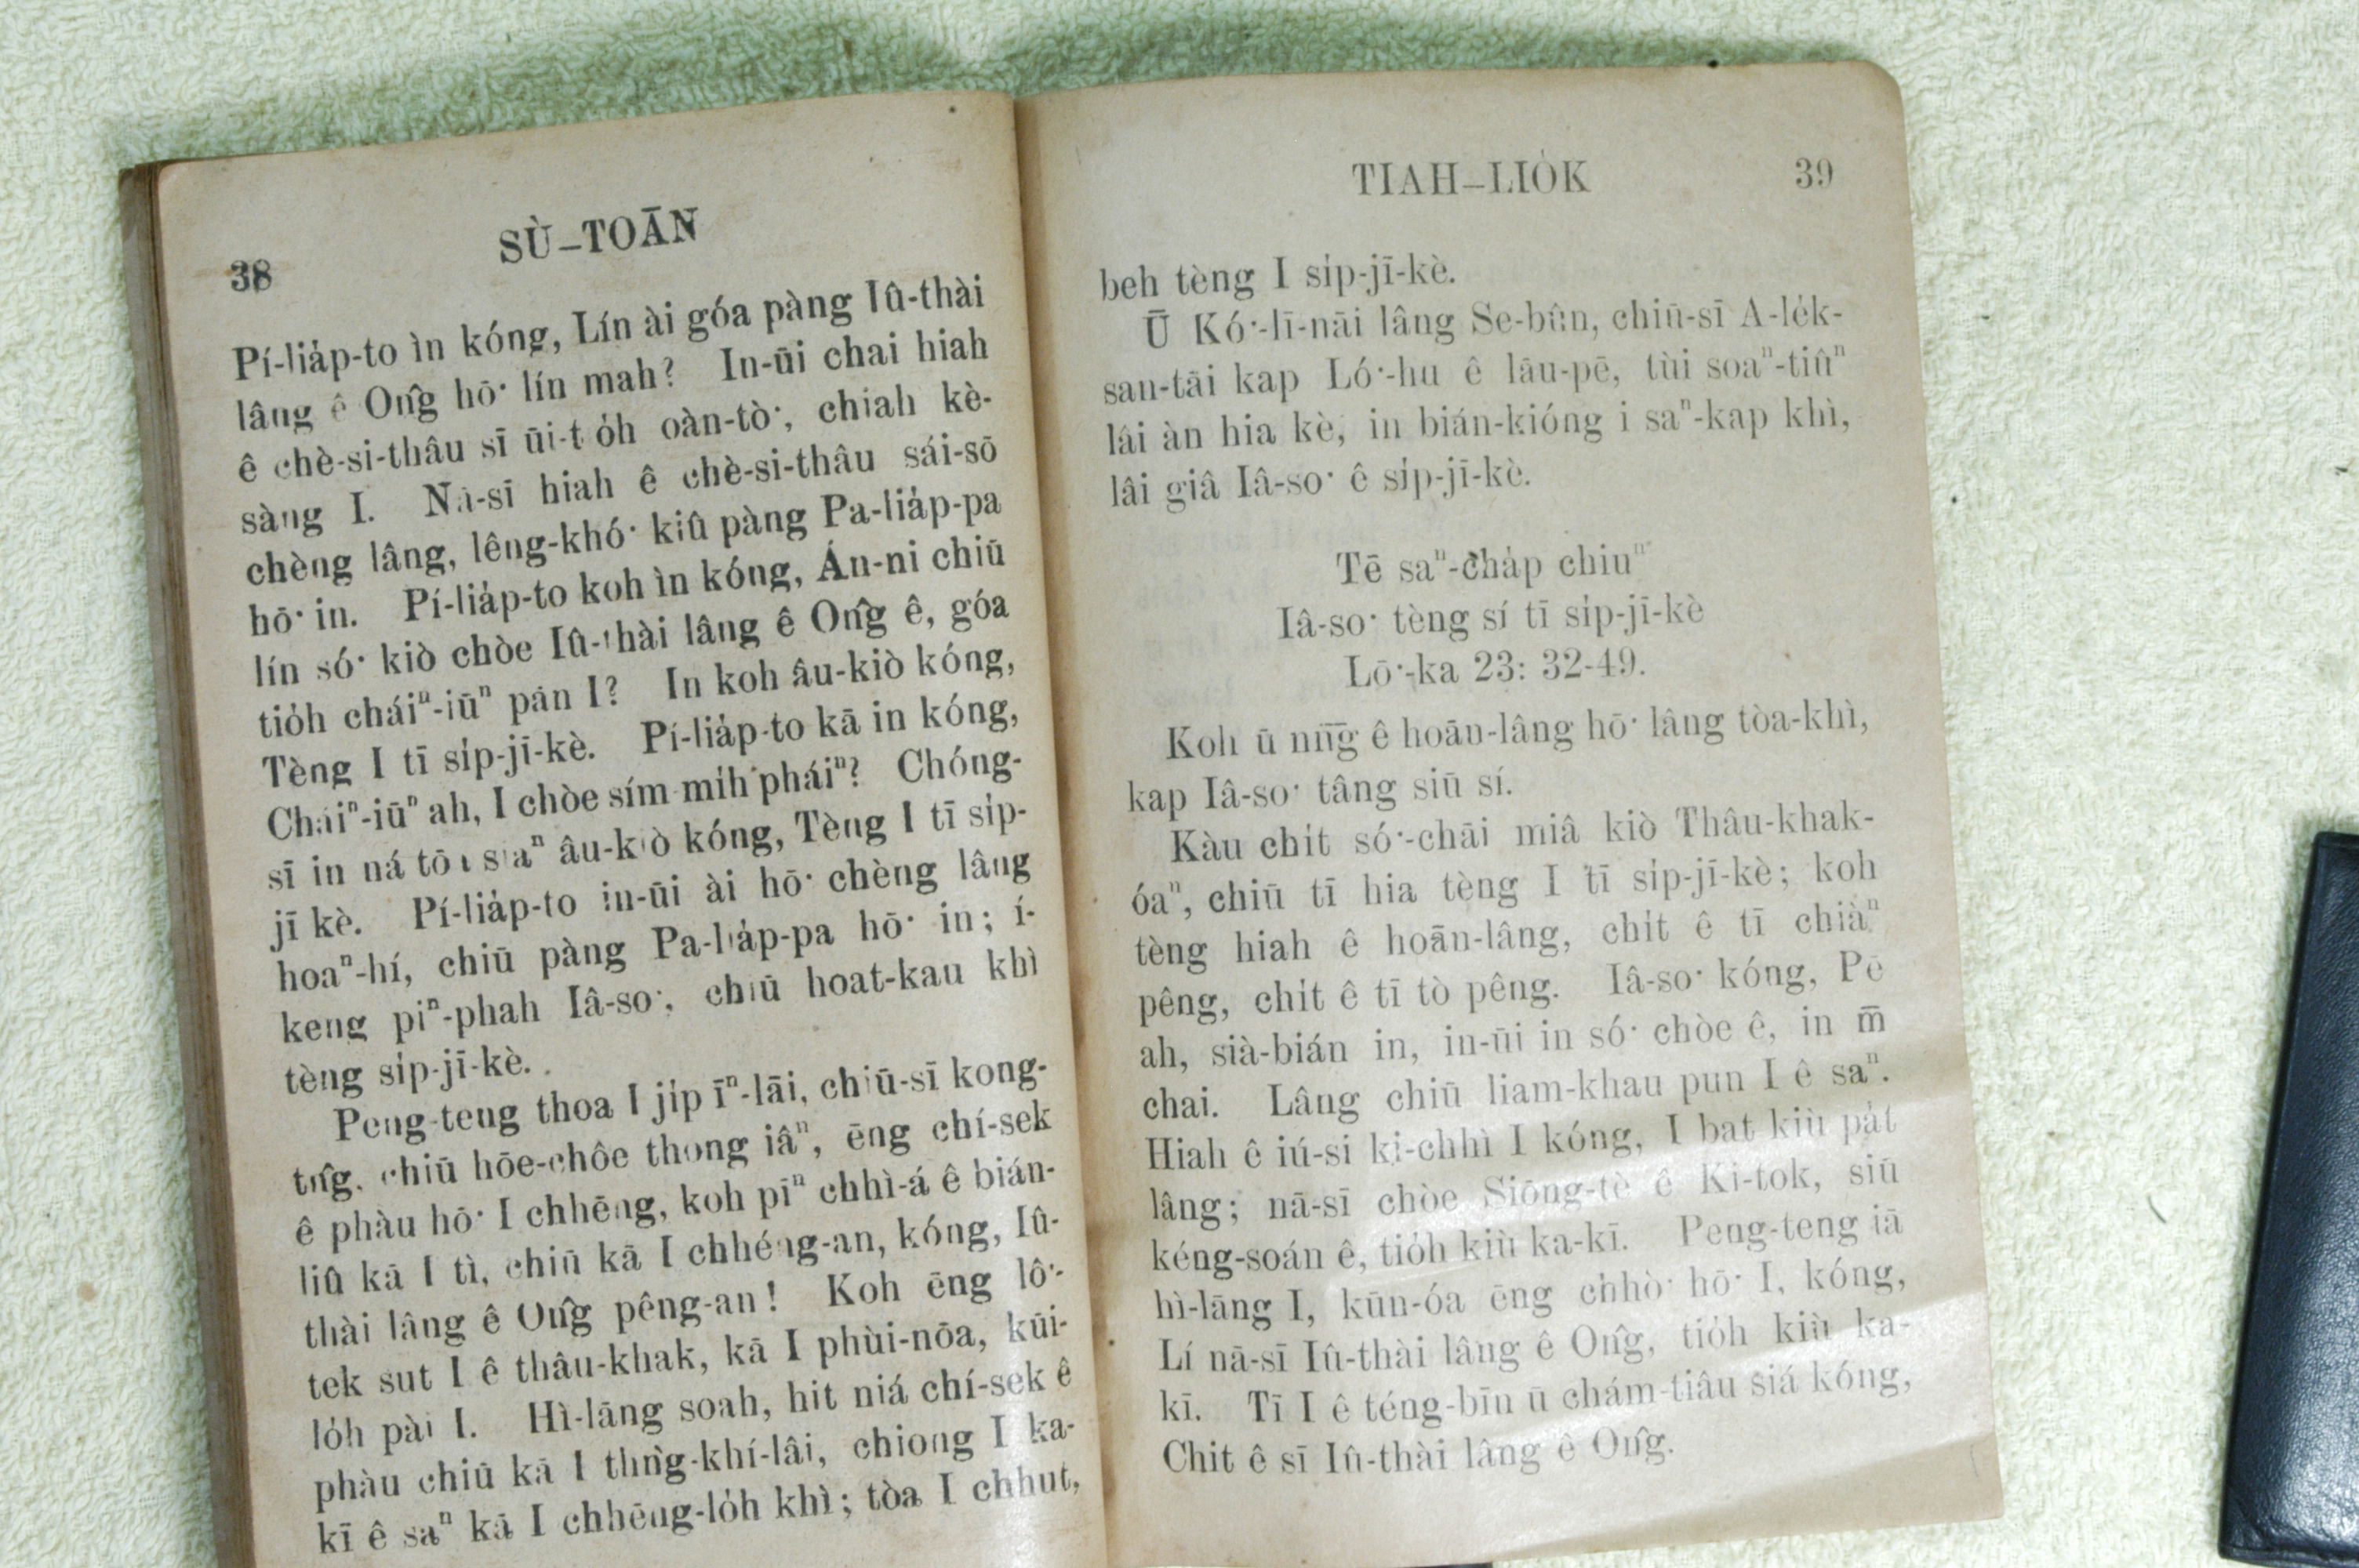 38
SÙ–TOĀN
Pí-lia̍p-to ìn kóng, Lín ài góa pàng Iû-thài
lâng ê On̂g hō͘ lín mah? In-ūi chai hiah
ê chè-si-thâu sī ūi-t o̍h oàn-tò͘, chiah kè-
sàng I. Nā-sī hiah ê chè-si-thâu sái-sō
chèng lâng, lêng-khó͘ kiû pàng Pa-lia̍p-pa
hō͘ in. Pí-lia̍p-to koh ìn kóng, Án-ni chiū
lín só͘ kiò chòe Iû-thài lâng ê On̂g ê, góa
tio̍h cháiⁿ-iūⁿ pān I? In koh âu-kiò kóng,
Tèng I tī si̍p-jī-kè. Pí-lia̍p-to kā in kóng,
Cháiⁿ-iūⁿ ah, I chòe sím-mi̍h pháiⁿ? Chóng-
sī in ná siaⁿ âu-kiò kóng, Tèng I tī si̍p-
jī kè. Pí-lia̍p-to in-ūi ài hō͘ chèng lâng
hoaⁿ-hí, chiū pàng Pa-lia̍p-pa hō͘ in; í-
keng piⁿ-phah Iâ-so͘, chiū hoat-kau khì
tèng si̍p-jī-kè.
Peng-teng thoa I ji̍p īⁿ-lāi, chiū-sī kong-
tn̂g, chiū hōe-chôe thong iâⁿ, ēng chí-sek
ê phàu hō͘ I chhēng, koh pīⁿ chhì-á ê bián-
liû kā I tì, chiū kā I chhéng-an, kóng, Iû-
thài lâng ê On̂g pêng-an! Koh ēng lô͘-
tek sut I ê thâu-khak, kā I phùi-nōa, kūi-
lo̍h pài I. Hì-lāng soah, hit niá chí-sek ê
phàu chiū kā I thn̂g-khí-lâi, chiong I ka-
kī ê saⁿ kā I chhēng-lo̍h khì; tòa I chhut,
TIAH–LIO̍K 39
beh tèng I si̍p-jī-kè.
Ū Kó͘-lī-nāi lâng Se-bûn, chiū-sī A-le̍k-
san-tāi kap Ló͘-hu ê lāu-pē, tùi soaⁿ-tiûⁿ
lâi àn hia kè, in bián-kióng i saⁿ-kap khì,
lâi giâ Iâ-so͘ ê si̍p-jī-kè.
Tē saⁿ-cha̍p chiuⁿ
Iâ-so͘ tèng sí tī si̍p-jī-kè
Lō͘-ka 23: 32-49.
Koh ū nn̄g ê hoān-lâng hō͘ lâng tòa-khì,
kap Iâ-so͘ tâng siū sí.
Kàu chi̍t só͘-chāi miâ kiò Thâu-khak-
óaⁿ, chiū tī hia tèng I tī si̍p-jī-kè; koh
tèng hiah ê hoān-lâng, chi̍t ê tī chiàⁿ
pêng, chi̍t ê tī tò pêng. Iâ-so͘ kóng, Pē
ah, sià-bián in, in-ūi in só͘ chòe ê, in m̄
chai. Lâng chiū liam-khau pun I ê saⁿ.
Hiah ê iú-si ki-chhì I kóng, I bat kiù pa̍t
lâng; nā-sī chòe Siōng-tè ê Ki-tok, siū
kéng-soán ê, tio̍h kiù ka-kī. Peng-teng iā
hì-lāng I, kūn-óa ēng chhò͘ hō͘ I, kóng,
Lí nā-sī Iû-thài lâng ê On̂g, tio̍h kiù ka-
kī. Tī I ê téng-bīn ū chám-tiâu siá kóng,
Chit ê sī Iû-thài lâng ê On̂g.